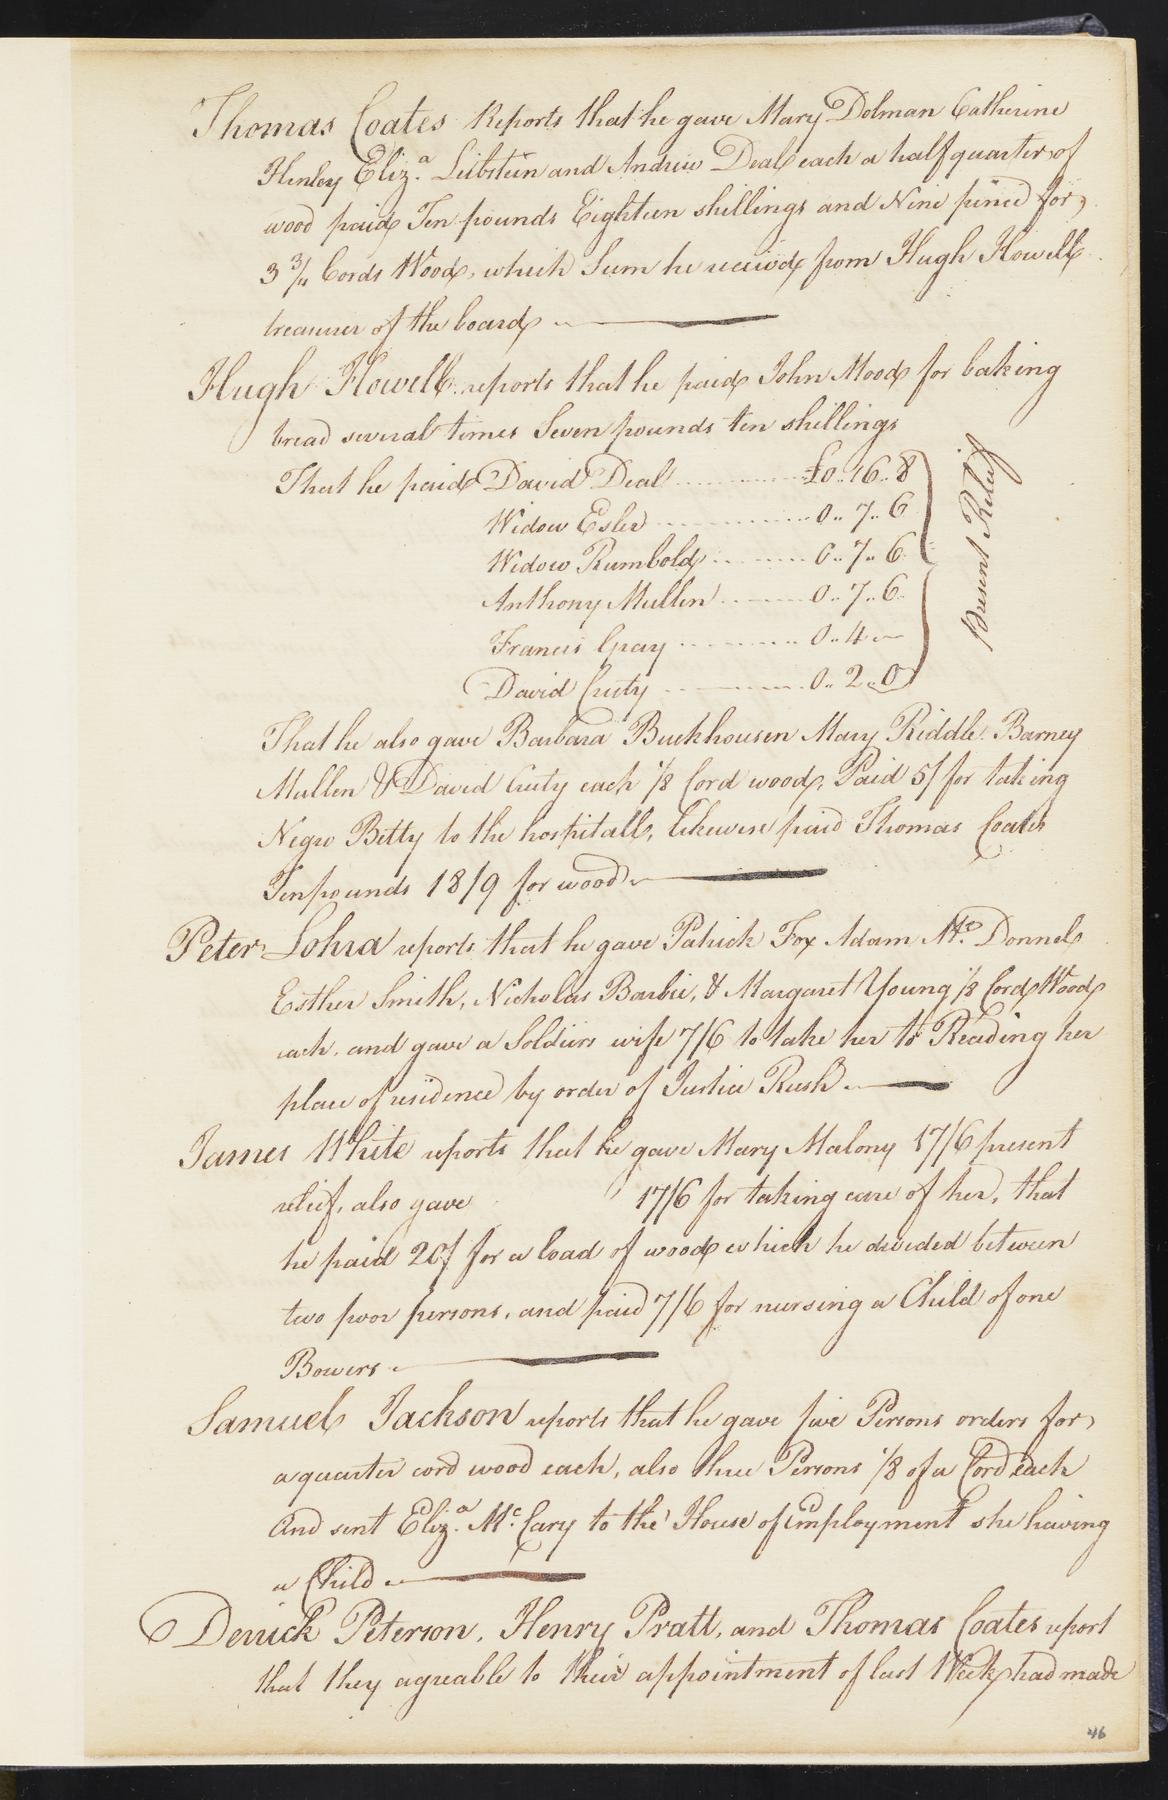 Thomas Coates Reports that he gave Mary Dolman Catherine
Henley Eliz.a Liibstein and Andrew Deal each a half quarter of
wood paid Ten pounds Eighteen shillings and Nine pence for
3 3/4 Cords Wood, which Sum he receivd from Hugh Howell
treasurer of the board
Hugh Howell reports that he paid John Mood for baking
bread several times Seven pounds ten shillings
That he paid David Deal £0..16..8
Widow Esler 0..7..6
Widow Rumbold 0..7..6
Anthony Mullen 0..7..6
Francis Gray 0..4..—
David Custy 0..2..0
Present Relief
That he also gave Barbara Buckhousen Mary Riddle Barney
Mullen & David Custy each 1/8 Cord wood, Paid 5/ for takeing
Negro Betty to the hospitall, likewise paid Thomas Coates
Ten pounds 18/9 for wood
Peter Lohra reports that he gave Patrick Fox Adam Mc. Donnel
Esther Smith, Nicholas Barbie, & Margaret Young 1/8 Cord Wood
each, and gave a Soldiers wife 7/6 to take her to Reading her
place of residence by order of Justice Rush
James White reports that he gave Mary Malony 17/6 present
relief, also gave 17/6 for taking care of her, that
he paid 20/ for a load of wood which he divided between
two poor persons, and paid 7/6 for nursing a Child of one
Bowers
Samuel Jackson reports that he gave five Persons orders for
a quarter cord wood each, also three Persons 1/8 of a Cord each
And sent Eliz.a Mc. Cary to the House of Employment she having
a Child
Derrick Peterson, Henry Pratt, and Thomas Coates report
that they agreable to their appointment of last Week had made
46